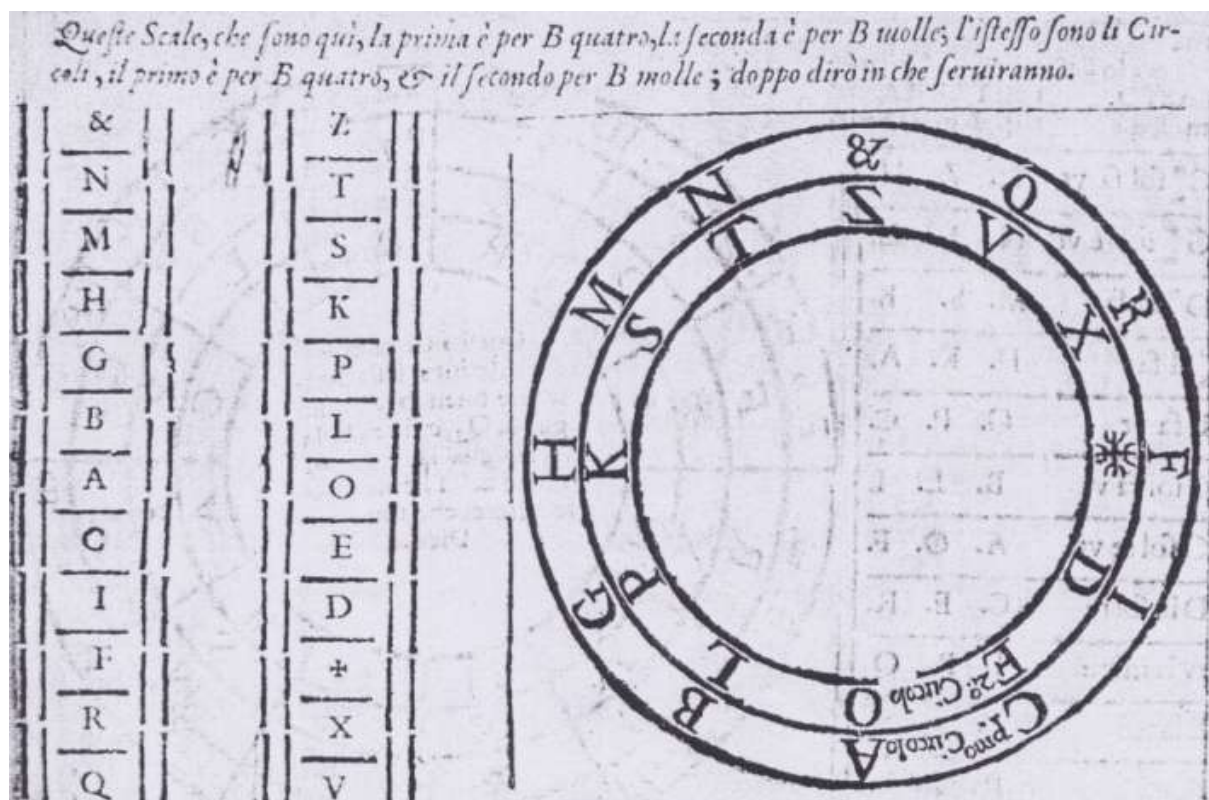 Queſte Scale, che ſono quì, la prima è per B quatro, la ſeconda è per B molle; l'iſteſſo ſono li Cir-
coli, il primo è per B quatro, & il ſecondo per B molle; doppo dirò in che ſeruiranno.
&
N
M
H
G
B
A
C
I
F
R
Q
Z
T
S
K
P
L
O
E
D
✠
X
V
& Q R F I C A B G H M N
pmo. Circolo
Z V X D E O L P K S T
2o. Circolo